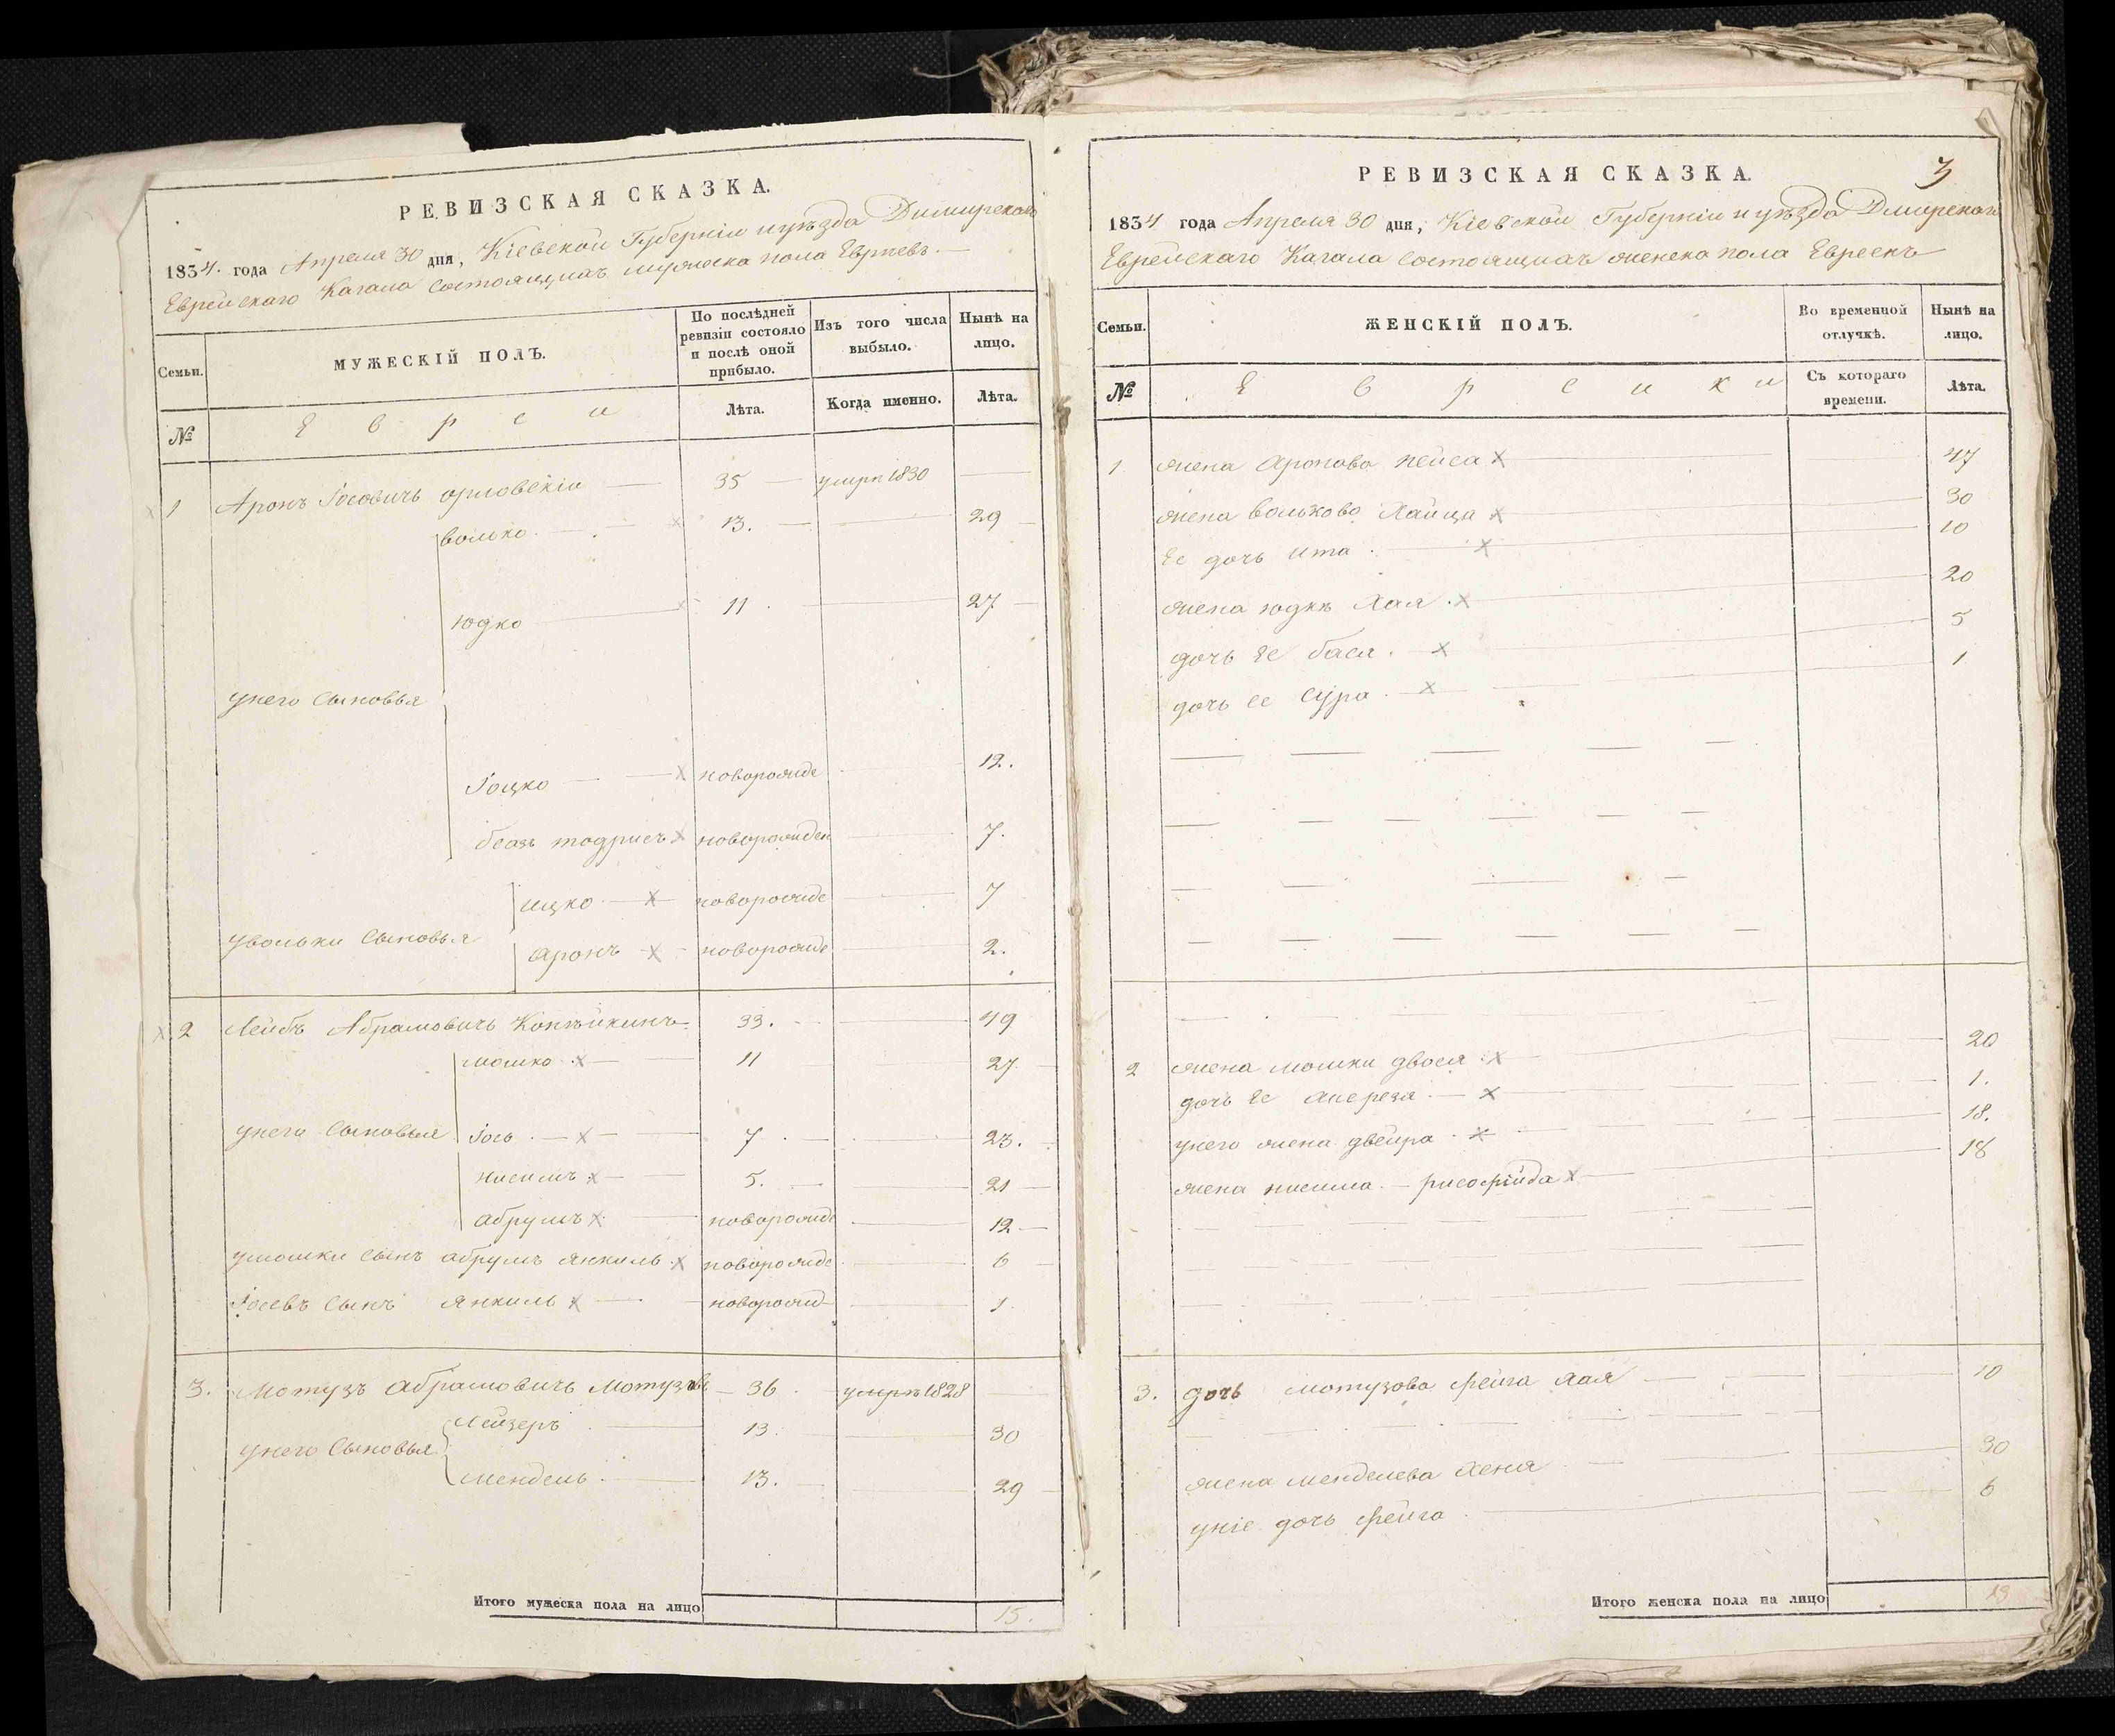 РЕВИЗСКАЯ СКАЗКА.
1834. года Апреля 30 дня, Кіевской Губерніи и уѣзда Димирскаго
Еврейскаго Кагала состоящихъ мужеска пола Евреевъ.
Семьи. МУЖЕСКІЙ ПОЛЪ. По послѣдней ревизіи состояло и послѣ оной прибыло. Изъ того числа выбыло. Нынѣ на лицо.
№ Евреи Лѣта. Когда именно. Лѣта.
1 Аронъ Іосовичь орловскій 35 умрп 1830
волько 13. 29
юдко 11 27
у него Сыновья
Іоцко новорожде 12.
тодрисъ новорожден 7.
ицко новорожде 7
у вольки Сыновья
аронъ новорожде 2.
2 Лейбъ Абрамовичь Копѣйкинъ 33. 49
мошко 11 27
у него Сыновья Іось 7 23.
нисимъ 5. 21
абрумъ новорожде 12
у мошки Сынъ абрумъ янкиль новорожде 6
Іосевъ Сынъ янкиль новорожд 1.
3. Мотузъ абрамовичь Мотузов 36 умрпъ 1828
Лейзеръ 13. 30
у него Сыновья
мендель 13. 29
Итого мужеска пола на лицо 15.
3
РЕВИЗСКАЯ СКАЗКА.
1834 года Апреля 30 дня, Кіевской Губерніи и уѣзда Дмирскаго
Еврейскаго Кагала состоящихъ женска пола Евреекъ
Семьи. ЖЕНСКІЙ ПОЛЪ. Во временной отлучкѣ. Нынѣ на лицо.
№ Еврейки Съ котораго времени. Лѣта.
1 жена аронова пейса 47
жена вольково хайца 30
ее дочь ита 10
жена юдкъ хая 20
дочь ее бася 5
дочь ее Сура 1
2 жена мошки двося 20
дочь ее 1.
у него жена двейра 18.
жена нисима рисофрійда 18
3. дочь мотузова фейга хая 10
жена менделева хеня 30
у ніе дочь фейга 6
Итого женска пола на лицо 13